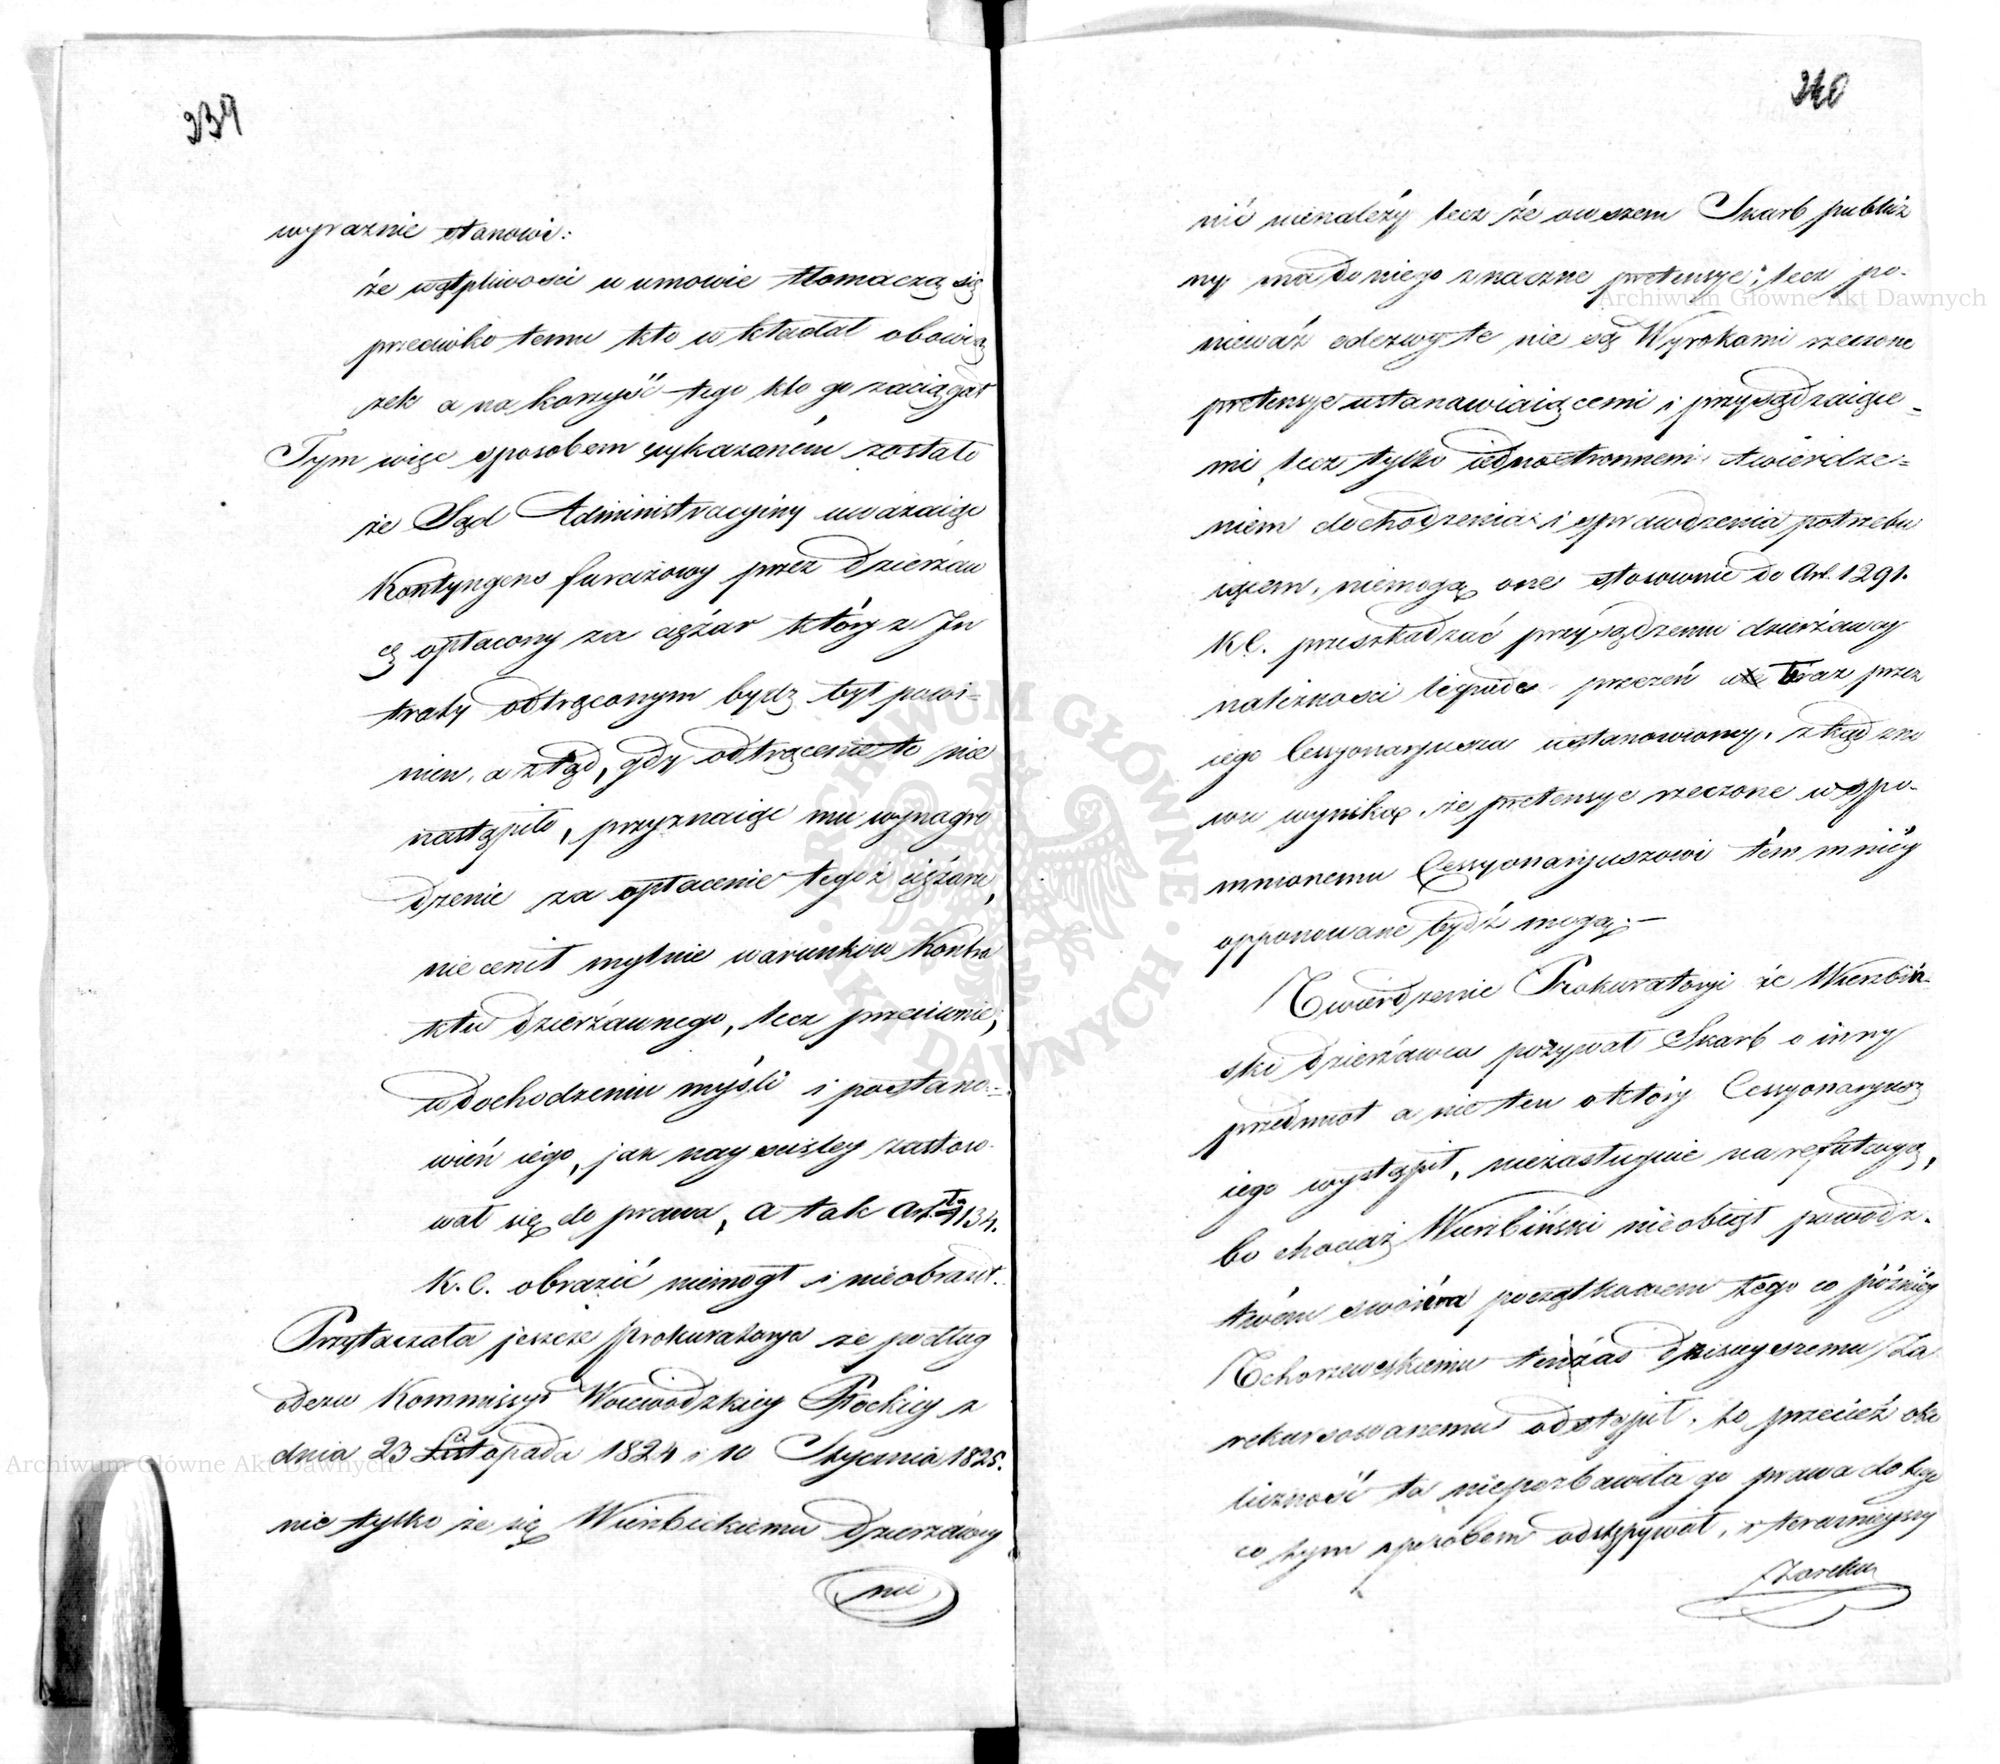 239
wyraznie stanowi:
że wątpliwości w umowie tłomaczą się
przeciwko temu kto wkładał obowią
zek a na korzyść tego kto go zaciągał
Tym więc sposobem wykazaném zostało
że Sąd Administracyiny uważaiąc
Kontyngens furażowy przez dzierżaw
cę opłacony za ciężar który z In
traty odtrąconym bydz był powi=
nien, a ztąd, gdy odtrącenie to nie
nastąpiło, przyznaiąc mu wynagro
dzenie za opłacenie tegoż ciężaru,
nie cenił mylnie warunków Kontra
ktu dzierżawnego, lecz przeciwnie,
w dochodzeniu myśli i postano=
wień iego, jak nayściśley zastoso
wał się do prawa, a tak Art. 1134.
K. C. obrazić niemógł i nieobraził.
Przytaczała jeszcze Prokuratorya że podług
odezw Kommissyi Woiewódzkiey Płockiey z
dnia 23 Listopada 1824 i 10 Stycznia 1825.
nie tylko że się Wierzbickiemu dzierżawcy
nic
240
nić nienależy lecz że owszem Skarb publicz
ny ma do niego znaczne pretensye; lecz po-
nieważ odezwy te nie są Wyrokami rzeczone
pretensye ustanawiaiącemi i przysądzaiące=
mi, lecz tylko iednostronnem twierdze=
niem dochodzenia i sprawdzenia potrzebu
iącem, niemogą one stosownie do Art. 1291.
K.C. przeszkadzać przysądzeniu dzierżawcy
należności liquide przezeń teraz przez
iego Cessyonaryusza ustanowioney, zkąd zno
wu wynika, że pretensye rzeczone wspo-
mnionemu Cessyonaryuszowi tém mniéy
opponowane bydź mogą.—
Twierdzenie Prokuratoryi że Wierzbiń-
ski dzierżawca pozywał Skarb o inny
przedmiot a nie ten o który Cessyonaryusz
iego wystąpił, niezasługuie na refutacyą,
bo chociaż Wierzbiński nieobiął powódz-
twem swoiém początkowem tego co późniéy
Tchorzewskiemu tenżaś dzisieyszemu Za
rekursowanemu odstąpił, to przecież oko
liczność ta niepozbawiła go prawa do tego
co tym sposobem odstępywał, i teraznieyszy
Zareku
Archiwum Główne Akt Dawnych
Archiwum Główne Akt Dawnych
ARCHIWUM GŁÓWNE · AKT DAWNYCH ·